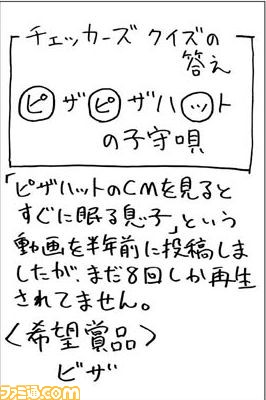 チェッカーズ クイズの
答え
ピザピザハット
の子守唄
「ピザハットのCMを見ると
すぐに眠る息子」という
動画を半年前に投稿しま
したが、まだ8回しか再生
されてません。
〈希望賞品〉
ビザ
ファミ通.com